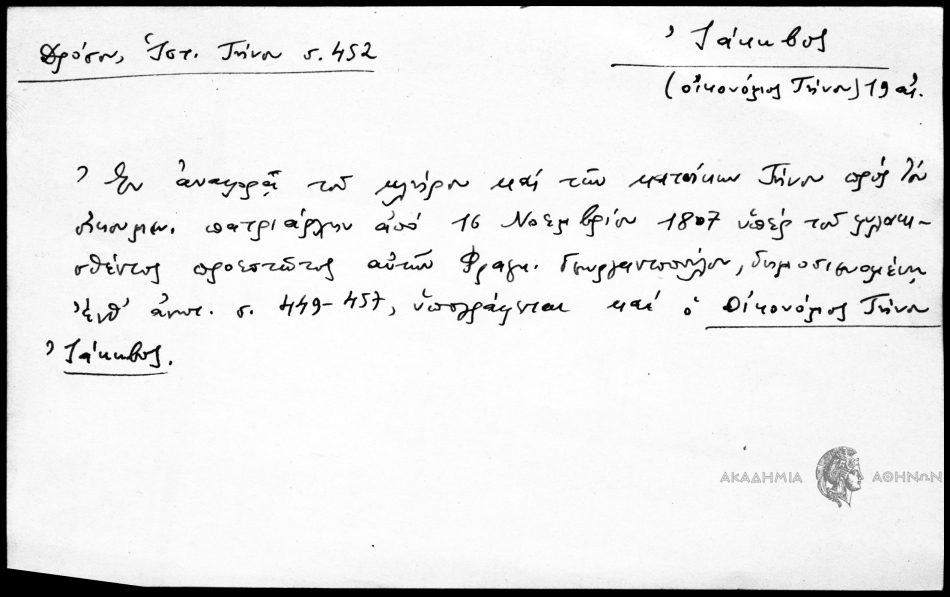 Δρόσου, Ἱστ. Τήνου σ. 452
Ἰάκωβος
(οἰκονόμος Τήνου) 19 αἰ.
Ἐν ἀναφορᾷ τοῦ κλήρου καί τῶν κατοίκων Τήνου πρός τόν
οἰκουμεν. πατριάρχην ἀπό 16 Νοεμβρίου 1807 ὑπέρ τοῦ φυλακι-
σθέντος προεστῶτος αὐτῶν Φραγκ. Γεωργαντοπούλου, δημοσιευομένῃ
ἔνθ' ἀνωτ. σ. 449-457, ὑπογράφεται καί ὁ Οἰκονόμος Τήνου
Ἰάκωβος.
ΑΚΑΔΗΜΙΑ ΑΘΗΝΩΝ